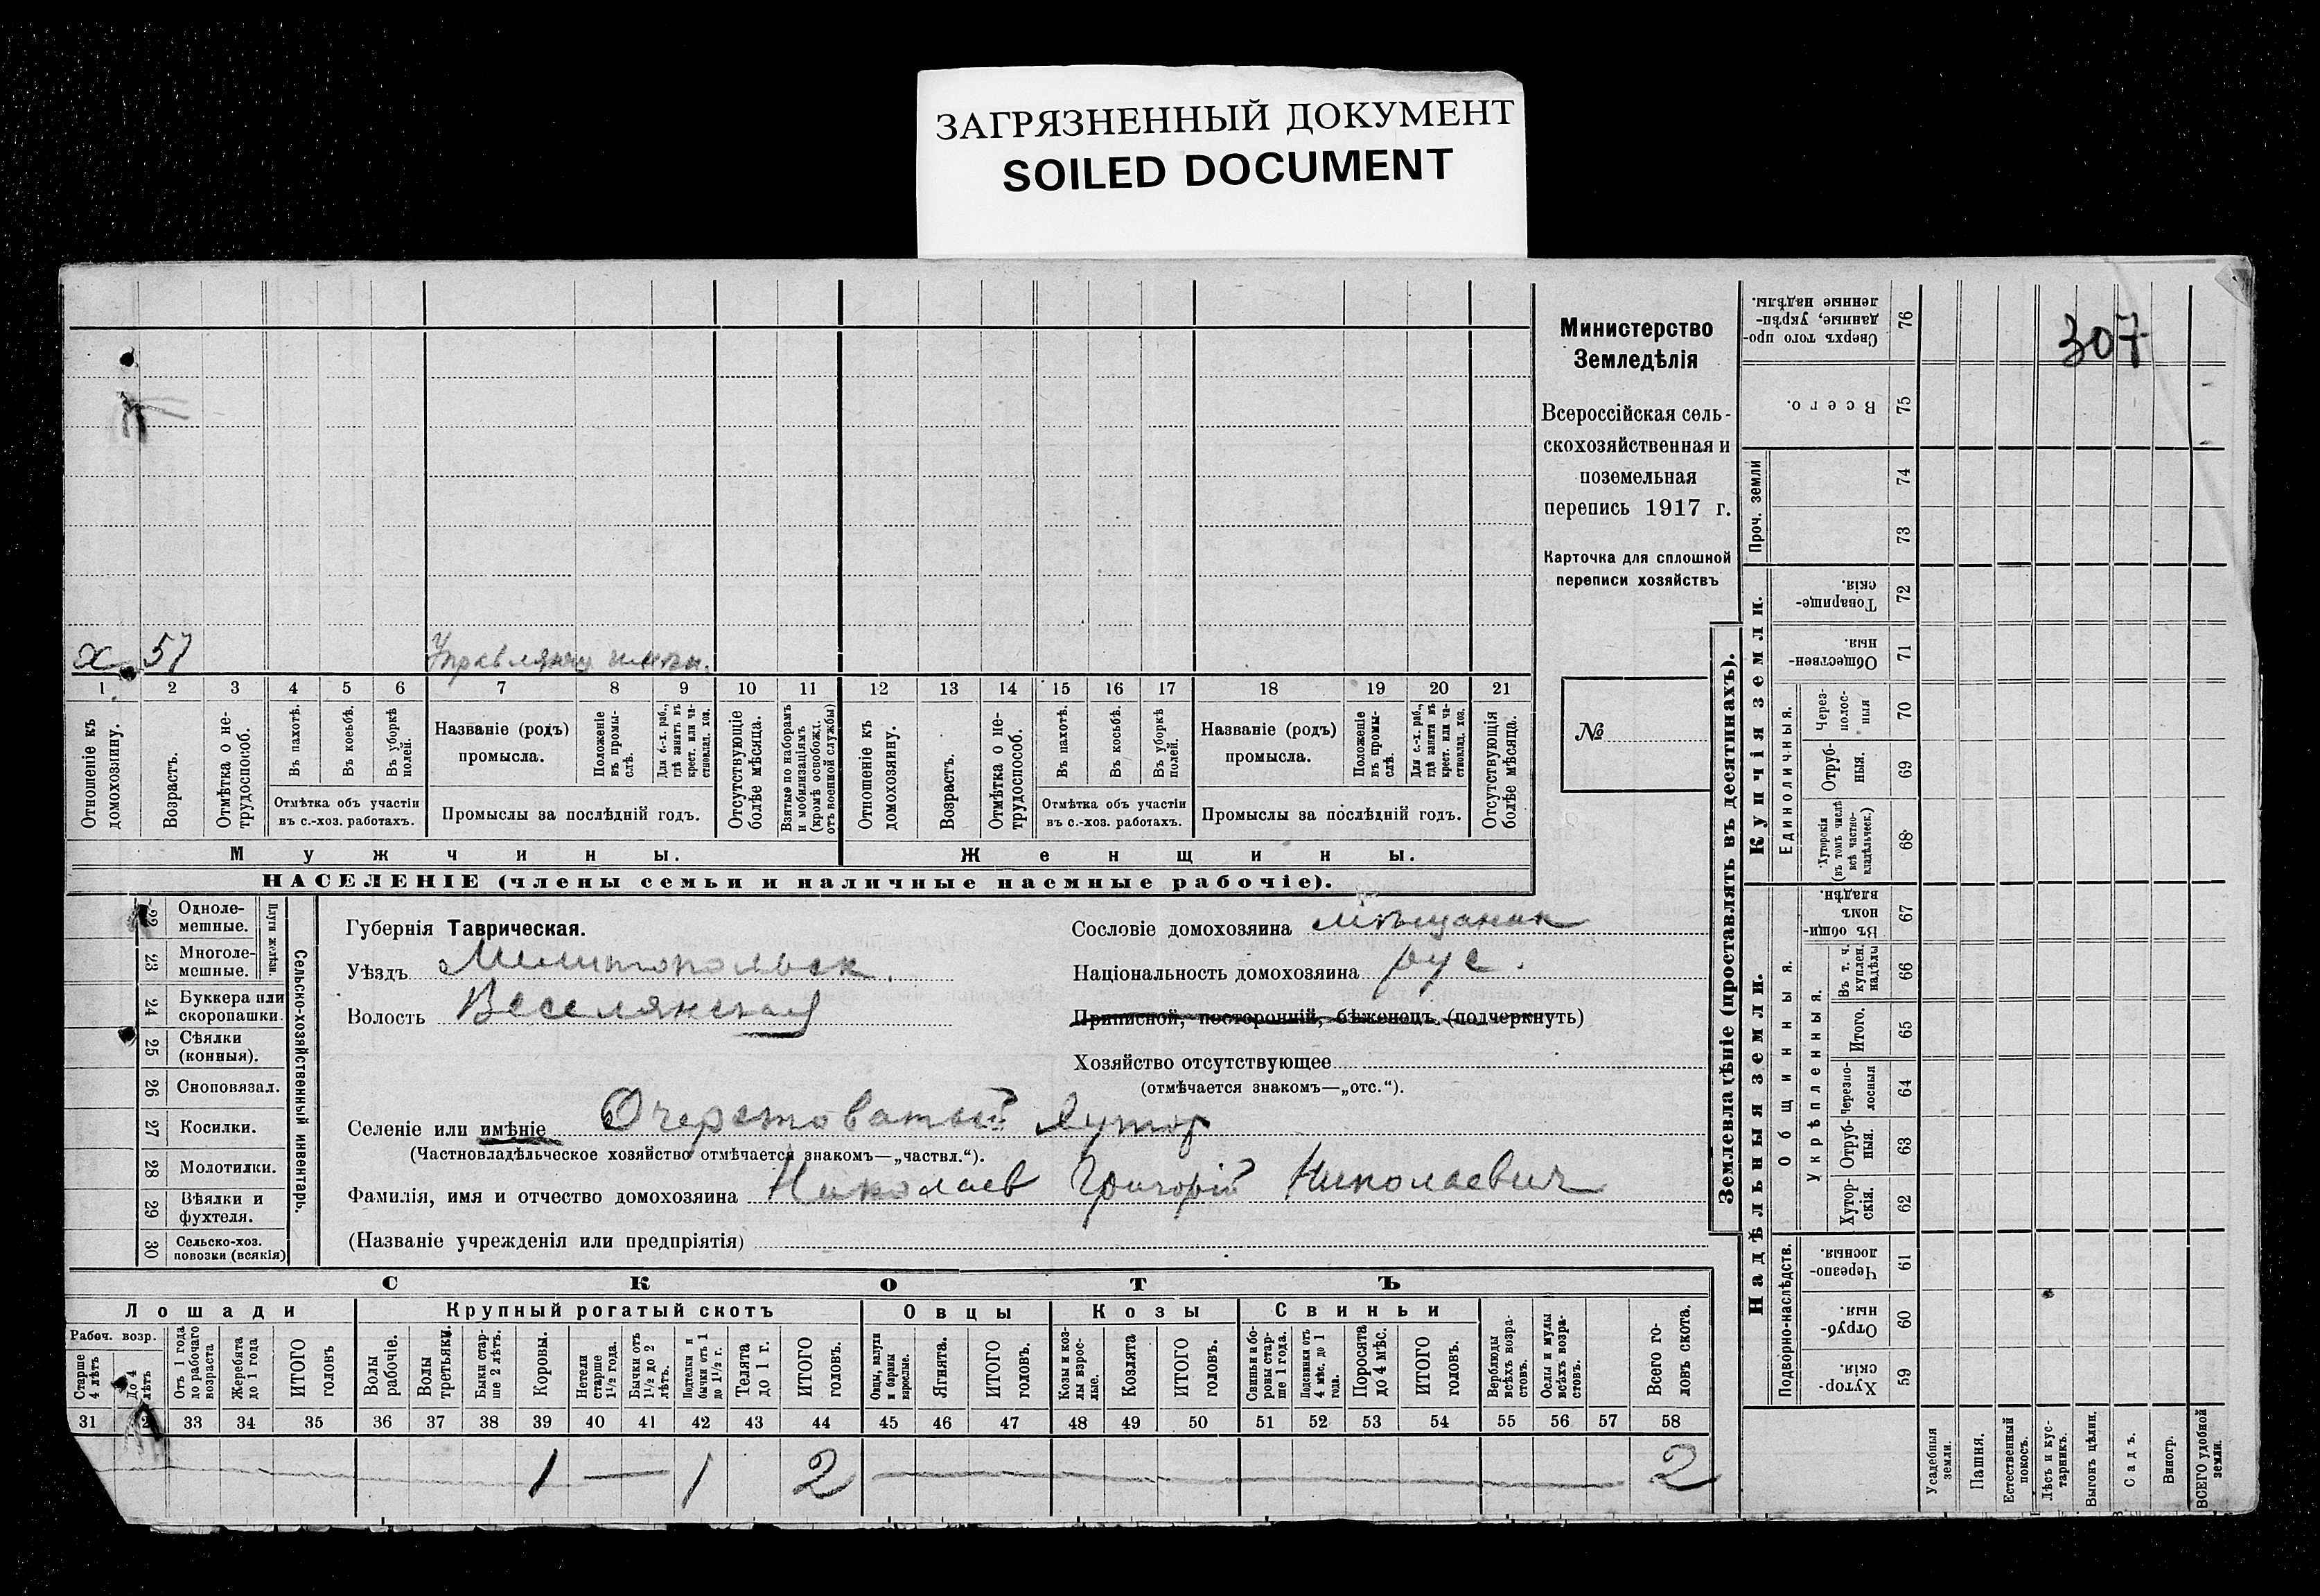 ЗАГРЯЗНЕННЫЙ ДОКУМЕНТ
SOILED DOCUMENT
307
Министерство
Земледѣлія
Всероссійская сель-
скохозяйственная и
поземельная
перепись 1917 г.
Карточка для сплошной
переписи хозяйствъ
№
х 57 Управляющ имѣн.
1 2 3 4 5 6 7 8 9 10 11 12 13 14 15 16 17 18 19 20 21
Отношеніе къ домохозяину.
Возрастъ.
Отмѣтка о не-трудоспособ.
Въ пахотѣ.
Въ косьбѣ.
Въ уборкѣ полей.
Отмѣтка объ участіи
въ с.-хоз. работахъ.
Названіе (родъ)
промысла.
Положеніе въ промы-слѣ.
Для с.-х. раб., гдѣ занятъ въ крест. или ча-стновлад. хоз.
Промыслы за послѣдній годъ.
Отсутствующіе болѣе мѣсяца.
Взятые по наборамъ и мобилизаціямъ (кромѣ освобожд. отъ военной службы)
Отношеніе къ домохозяину.
Возрастъ.
Отмѣтка о не-трудоспособ.
Въ пахотѣ.
Въ косьбѣ.
Въ уборкѣ полей.
Отмѣтка объ участіи
въ с.-хоз. работахъ.
Названіе (родъ)
промысла.
Положеніе въ промы-слѣ.
Для с.-х. раб., гдѣ занята въ крест. или ча-стновлад. хоз.
Промыслы за послѣдній годъ.
Отсутствующія болѣе мѣсяца.
Мужчины. Женщины.
НАСЕЛЕНІЕ (члены семьи и наличные наемные рабочіе).
Сельско-хозяйственный инвентарь.
Плуги желѣзн.
22 Одноле-мешные.
23 Многоле-мешные.
24 Буккера или скоропашки.
25 Сѣялки (конныя).
26 Сноповязал.
27 Косилки.
28 Молотилки.
29 Вѣялки и фухтеля.
30 Сельско-хоз. повозки (всякія)
Губернія Таврическая.
Уѣздъ Мелитопольск.
Волость Веселянская
Сословіе домохозяина мѣщанин
Національность домохозяина рус.
Приписной, посторонній, бѣженецъ (подчеркнуть)
Хозяйство отсутствующее
(отмѣчается знакомъ—„отс.“).
Селеніе или имѣніе Очеретоватый Хутор
(Частновладѣльческое хозяйство отмѣчается знакомъ—„частвл.“).
Фамилія, имя и отчество домохозяина Николаев Григорій Николаевич
(Названіе учрежденія или предпріятія)
СКОТЪ
Лошади Крупный рогатый скотъ Овцы Козы Свиньи
Рабоч. возр.
Старше 4 лѣтъ
До 4 лѣтъ
Отъ 1 года до рабочаго возраста
Жеребята до 1 года
ИТОГО головъ
Волы рабочіе.
Волы третьяки.
Быки стар-ше 2 лѣтъ.
Коровы.
Нетели старше 1½ года.
Бычки отъ 1½ до 2 лѣтъ.
Подтелки и бычки отъ 1 до 1½ г.
Телята до 1 г.
ИТОГО головъ.
Овцы, валухи и бараны взрослые.
Ягнята.
ИТОГО головъ.
Козы и коз-лы взрос-лые.
Козлята
ИТОГО головъ.
Свиньи и бо-ровы стар-ше 1 года.
Подсвинки отъ 4 мѣс. до 1 года.
Поросята до 4 мѣс.
ИТОГО головъ.
Верблюды всѣхъ возра-стовъ.
Ослы и мулы всѣхъ возра-стовъ.
Всего го-ловъ скота.
31 33 34 35 36 37 38 39 40 41 42 43 44 45 46 47 48 49 50 51 52 53 54 55 56 57 58
1 — 1 2 2
Землевладѣніе (проставлять въ десятинахъ).
Сверхъ того про-данные, укрѣп-ленные надѣлы. 76
Всего. 75
Проч. земли
74
73
Купчія земли.
Товарище-скія. 72
Обществен-ныя. 71
Единоличныя.
Через-полос-ныя 70
Отруб-ныя. 69
Хуторскія (въ томъ числѣ всѣ частно-владѣльческ.) 68
Надѣльныя земли.
Общинныя.
Въ общин-номъ владѣн. 67
Укрѣпленныя.
Въ т. ч. куплен. надѣлы 66
Итого. 65
Черезпо-лосныя 64
Отруб-ныя. 63
Хутор-скія. 62
Подворно-наслѣдств.
Черезпо-лосныя. 61
Отруб-ныя. 60
Хутор-скія. 59
Усадебныя земли.
Пашня.
Естественный покосъ.
Лѣсъ и кус-тарникъ.
Выгонъ цѣлин.
Садъ.
Виногр.
ВСЕГО удобной земли.